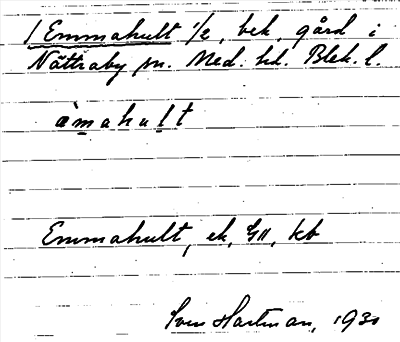 Emmahult 1/2, bek. gård i
Nättraby sn. Med. hd. Blek. l.
àmahult
Emmahult, ek, GII, kb
Sven Hartman, 1930